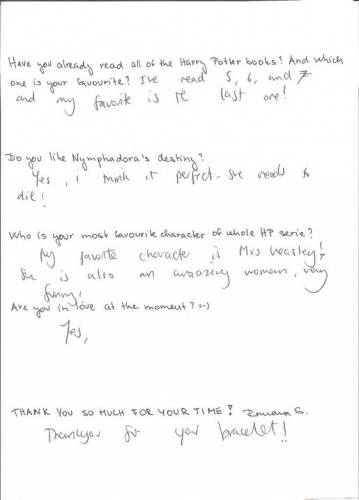 Have you already read all of the Harry Potter books? And which
one is your favourite? I've read 5, 6, and 7
and my favorite is the last one!
Do you like Nymphadora's destiny?
Yes, i think it perfect. She needs to
die!
Who is your most favourite character of whole HP serie?
My favorite character is Mrs Weasley!
She is also an amazing woman, very
funny!
Are you in love at the moment? :-)
Yes,
THANK YOU SO MUCH FOR YOUR TIME! Romana S.
Thankyou for your bracelet!